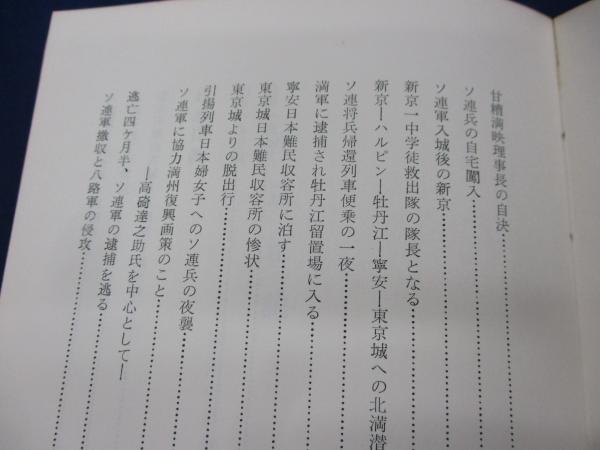 甘糟満映理事長の自決
ソ連兵の自宅闖入
ソ連軍入城後の新京
新京一中学徒救出隊の隊長となる
新京―ハルピン―牡丹江―寧安―東京城への北満潜
ソ連将兵帰還列車便乗の一夜
満軍に逮捕され牡丹江留置場に入る
寧安日本難民収容所に泊す
東京城日本難民収容所の惨状
東京城よりの脱出行
引揚列車日本婦女子へのソ連兵の夜襲
ソ連軍に協力満州復興画策のこと
―高碕達之助氏を中心として―
逃亡四ケ月半、ソ連軍の逮捕を逃る
ソ連軍撤収と八路軍の侵攻